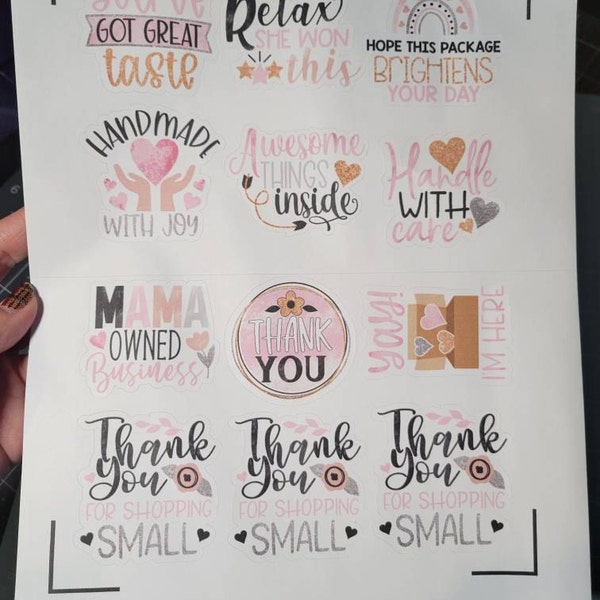 GOT GREAT
taste
Relax
SHE WON
this
HOPE THIS PACKAGE
BRIGHTENS
YOUR DAY
HANDMADE
WITH JOY
Awesome
THINGS
inside
Handle
WITH
care
MAMA
OWNED
Business
THANK
YOU
yay!
IM HERE
Thank
You
FOR SHOPPING
SMALL
Thank
You
FOR SHOPPING
SMALL
Thank
You
FOR SHOPPING
SMALL